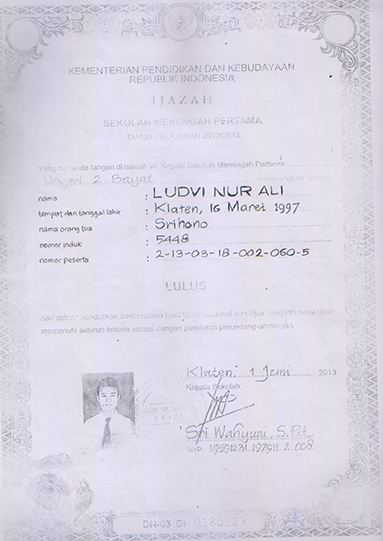 KEMENTERIAN PENDIDIKAN DAN KEBUDAYAAN
REPUBLIK INDONESIA
IJAZAH
SEKOLAH MENENGAH PERTAMA
TAHUN PELAJARAN 2012/2013
Yang bertanda tangan di bawah ini, Kepala Sekolah Menengah Pertama
Negeri 2 Bayat menerangkan bahwa
nama : LUDVI NUR ALI
tempat dan tanggal lahir : Klaten, 16 Maret 1997
nama orang tua : Srihono
nomor induk : 5448
nomor peserta : 2-13-03-18-002-060-5
LULUS
dari satuan pendidikan berdasarkan hasil Ujian Nasional dan Ujian Sekolah serta telah
memenuhi seluruh kriteria sesuai dengan peraturan perundang-undangan.
Klaten, 1 Juni 2013
Kepala Sekolah,
BAYAT
Sri Wahyuni, S.Pd.
NIP. 19591231 197911 2 008
DN-03 DI 0180123